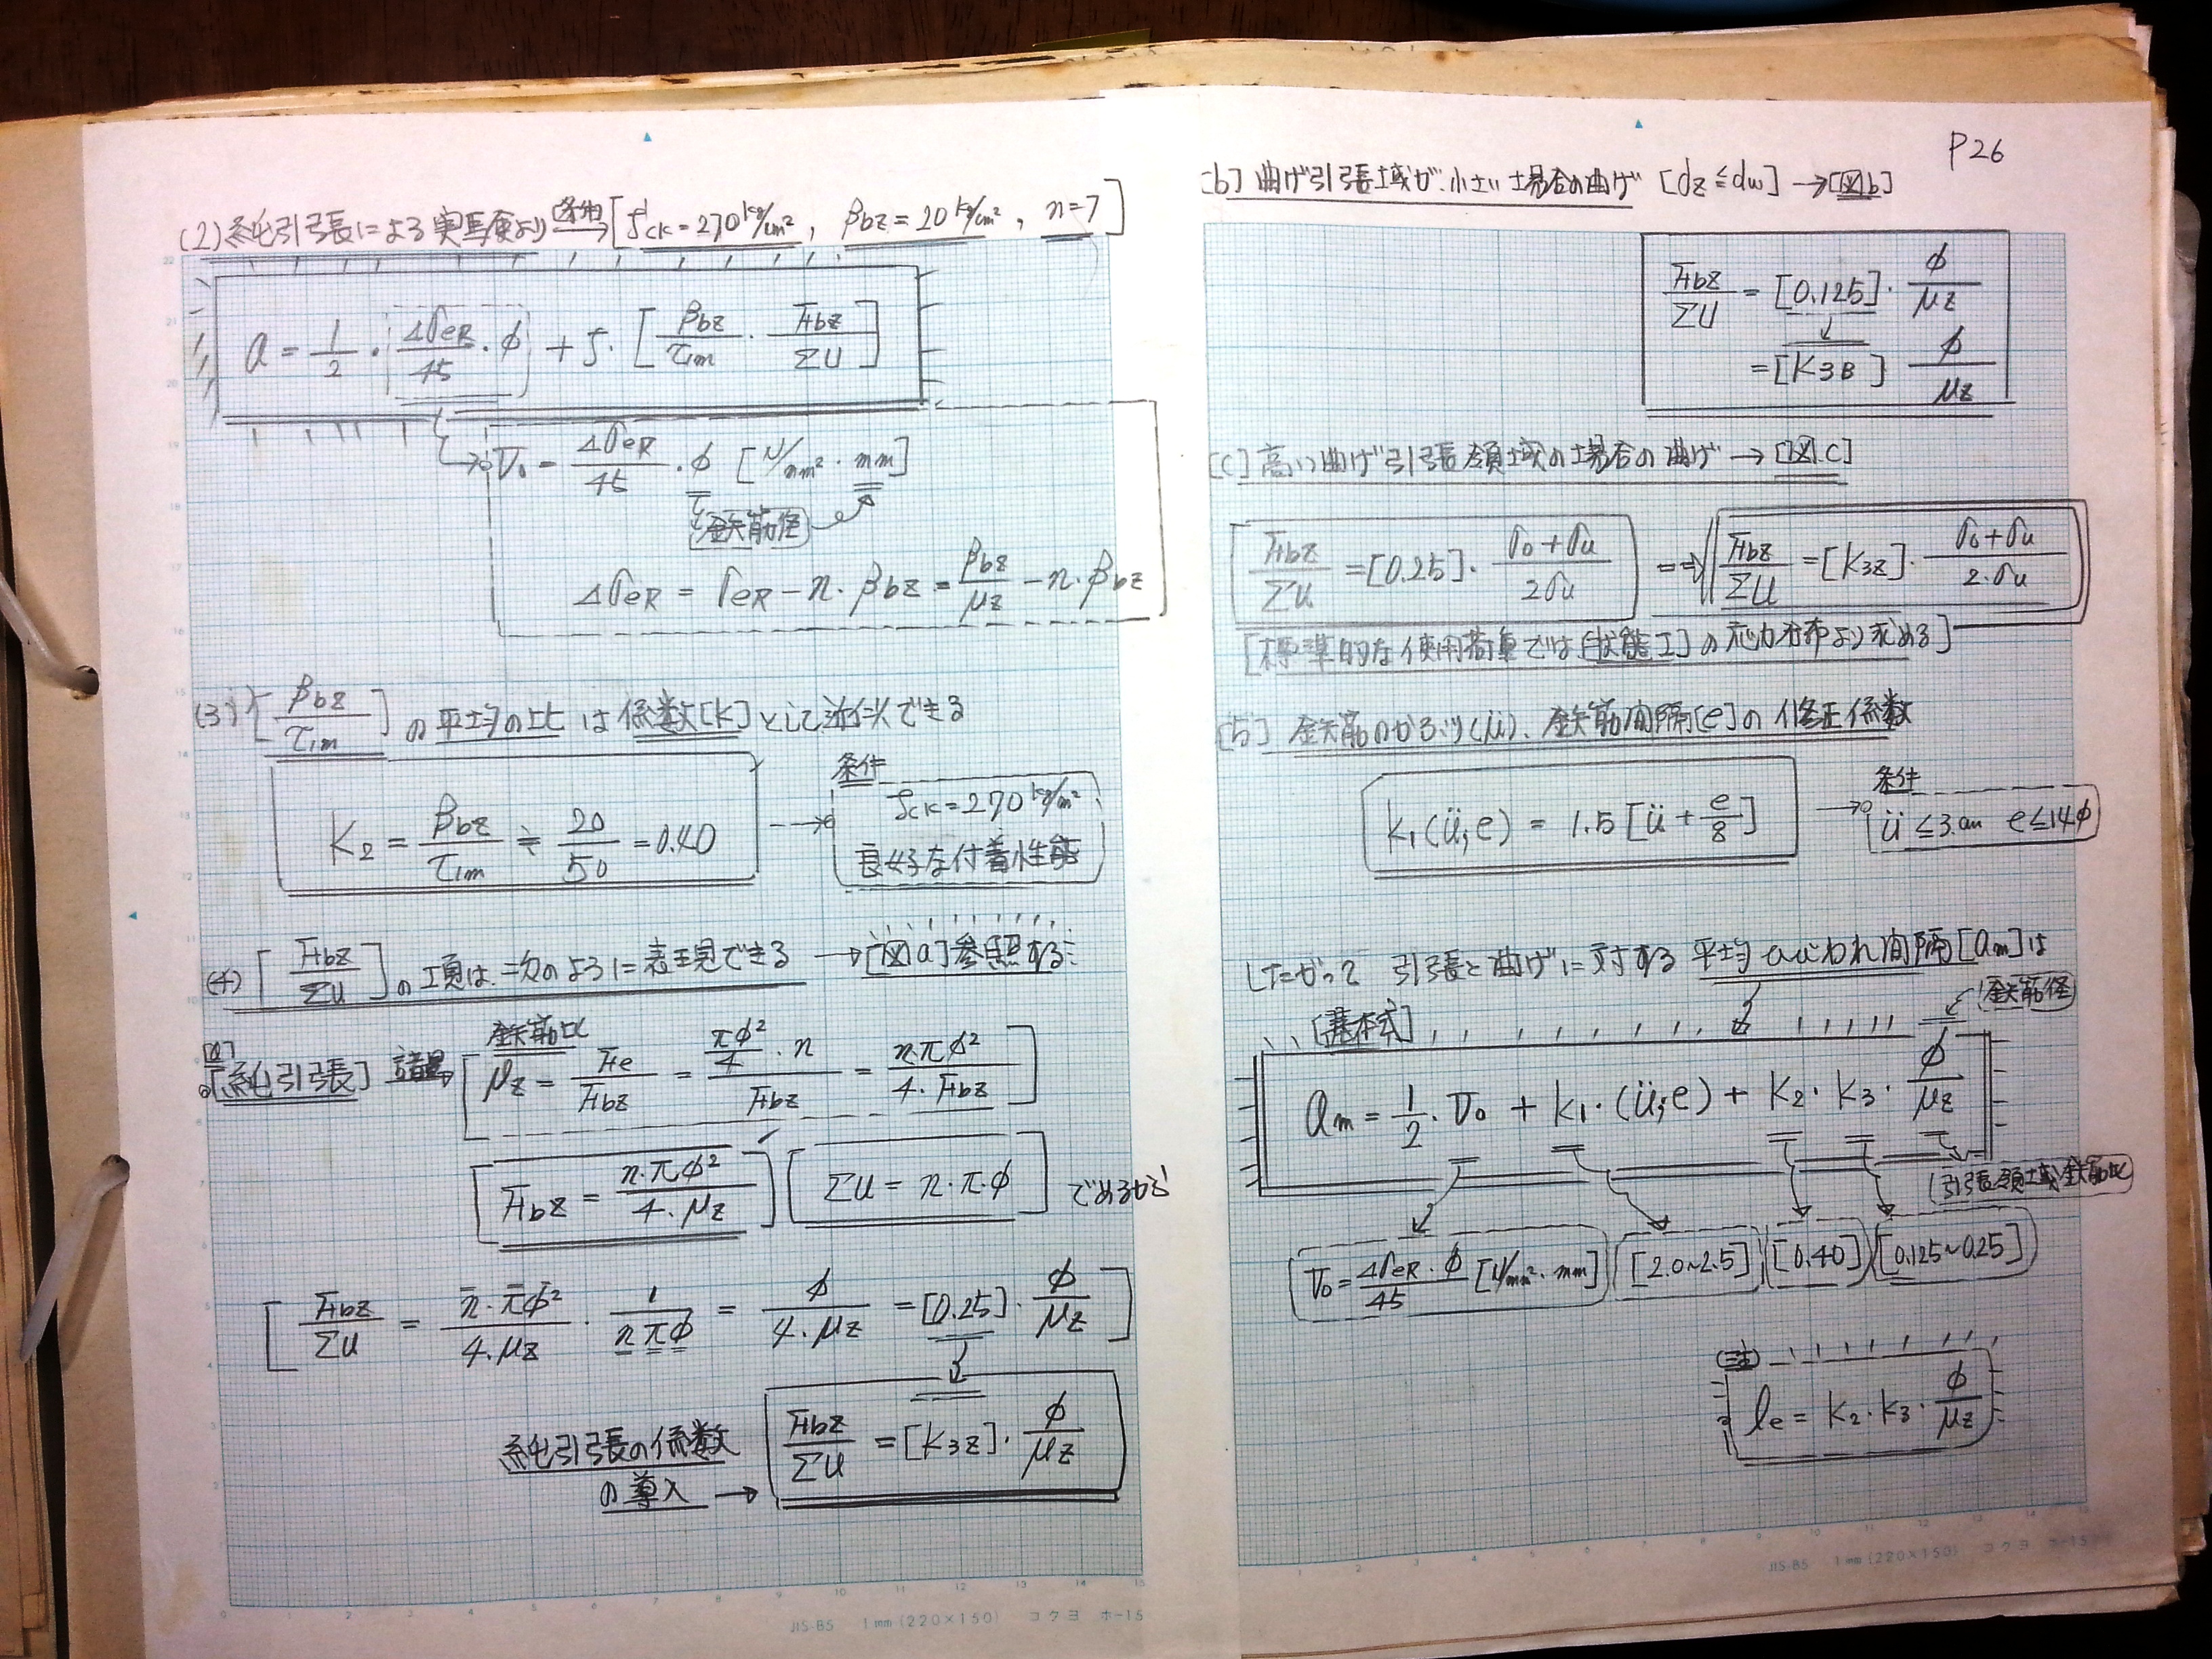 (2) 純引張による実験より 条件→ [σck=270kg/cm², βbz=20kg/cm², n=7]
a = 1/2 · ΔσeR/45 · φ + ζ · [βbz/τ1m · Fbz/ΣU]
v₀ = ΔσeR/45 · φ [N/mm² · mm]
鉄筋径
ΔσeR = σeR − n · βbz = βbz/μz − n · βbz
(3) [βbz/τ1m] の平均の比は係数[K]として近似できる
K₂ = βbz/τ1m ≒ 20/50 = 0.40
条件
σck=270kg/cm²
良好な付着性能
(4) [Fbz/ΣU] の項は、次のように表現できる → [図a]参照する
[a]
[純引張] 諸量→ [鉄筋比 μz = Fe/Fbz = (πφ²/4 · n)/Fbz = n·πφ²/4·Fbz]
[Fbz = n·πφ²/4·μz] [ΣU = n·π·φ] であるから
[Fbz/ΣU = n·πφ²/4·μz · 1/nπφ = φ/4·μz = [0.25] · φ/μz]
純引張の係数
の導入 → Fbz/ΣU = [K3z] · φ/μz
JIS-B5 1mm (220×150) コクヨ ホ-15
P26
[b] 曲げ引張域が小さい場合の曲げ [dz≦dw] → [図b]
Fbz/ΣU = [0.125] · φ/μz
= [K3B] φ/μz
[c] 高い曲げ引張領域の場合の曲げ → [図.c]
Fbz/ΣU = [0.25] · σo+σu/2σu ⇒ Fbz/ΣU = [K3z] · σo+σu/2·σu
[標準的な使用荷重では[状態I]の応力分布より求める]
[5] 鉄筋のかぶり(ü)、鉄筋間隔[e]の修正係数
K₁(ü,e) = 1.5 [ü + e/8]
条件
ü≦3.cm e≦14φ
したがって 引張と曲げに対する 平均ひびわれ間隔[am]は
[基本式]
鉄筋径
am = 1/2 · v₀ + K₁·(ü,e) + K₂·K₃· φ/μz
(引張領域鉄筋比)
v₀ = ΔσeR·φ/45 [N/mm²·mm] [2.0~2.5] [0.40] [0.125~0.25]
(注)
le = K₂·K₃· φ/μz
JIS-B5 1mm (220×150) コクヨ ホ-15